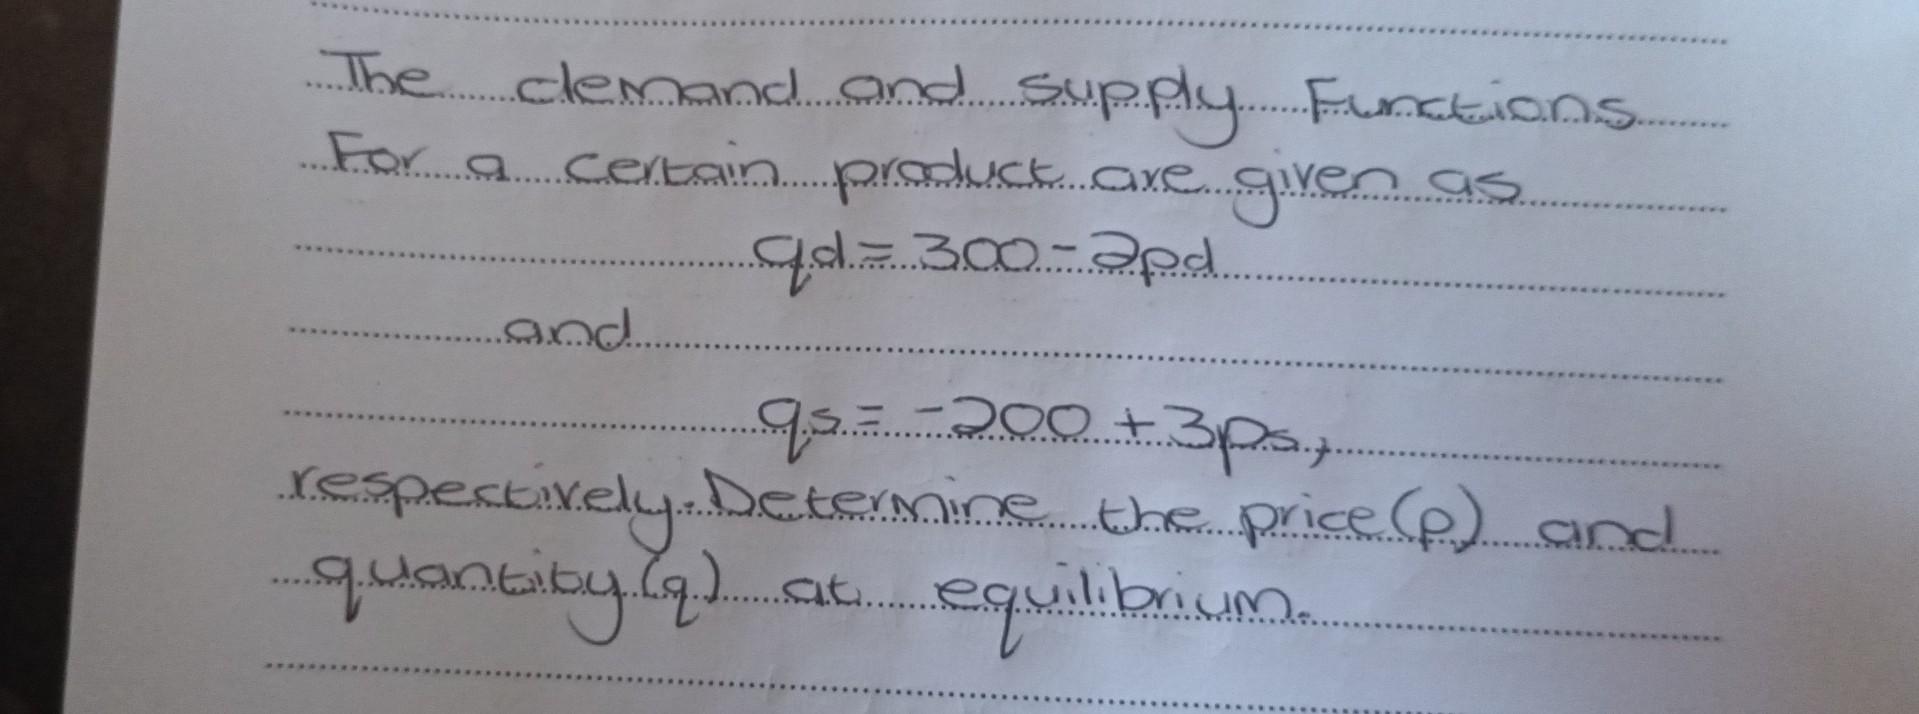 The demand and supply Functions
For a certain product are given as
qd = 300 - 2pd
and
qs = -200 + 3ps,
respectively. Determine the price (p) and
quantity (q) at equilibrium.